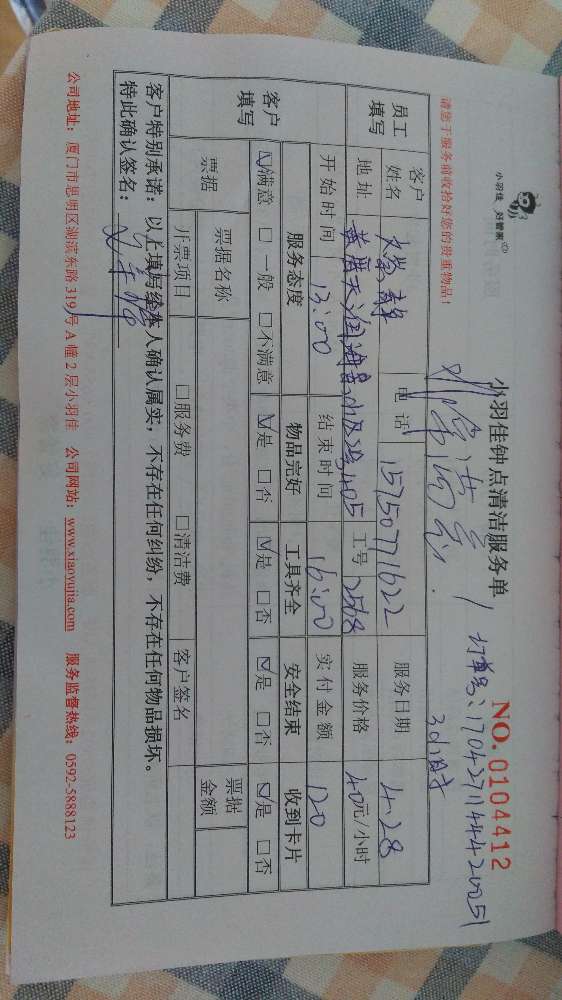 小羽佳 好管家
小羽佳钟点清洁服务单
NO. 0104412
订单号:17042711444420051
3小时
请您于服务前收拾好您的贵重物品!
员工填写
客户姓名
电话 15750771622
服务日期 4.28
地址
工号 2568
服务价格 40元/小时
开始时间 13:00
结束时间 16:00
实付金额 120
客户填写
服务态度 物品完好 工具齐全 安全结束 收到卡片
☑满意 □一般 □不满意 ☑是 □否 ☑是 □否 ☑是 □否 ☑是 □否
票据 票据名称 客户签名 票据金额
开票项目 □服务费 □清洁费
客户特别承诺:以上填写经本人确认属实,不存在任何纠纷,不存在任何物品损坏。
特此确认签名:
公司地址:厦门市思明区湖滨东路319号A幢2层小羽佳 公司网站:www.xiaoyujia.com 服务监督热线:0592-5888123